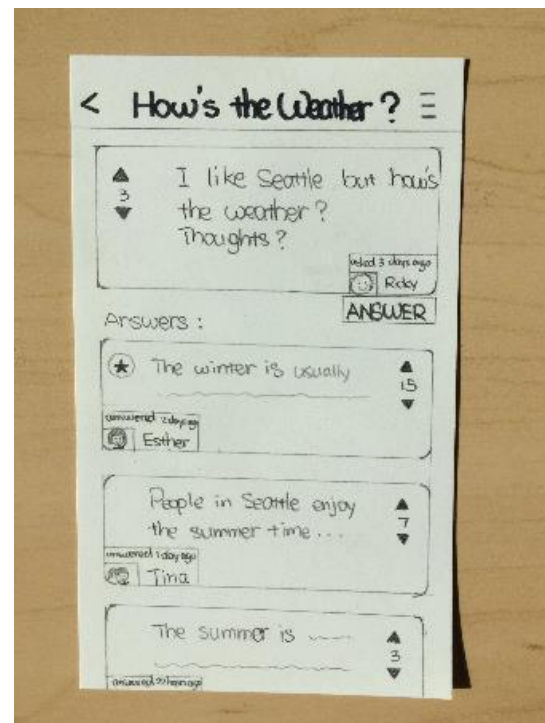 < How's the Weather ?
3
I like Seattle but how's
the weather?
Thoughts?
asked 3 days ago
Ricky
ANSWER
Answers :
The winter is usually
15
answered 2 days ago
Esther
People in Seattle enjoy
the summer time...
7
answered 1 day ago
Tina
The summer is
3
answered 22 hours ago